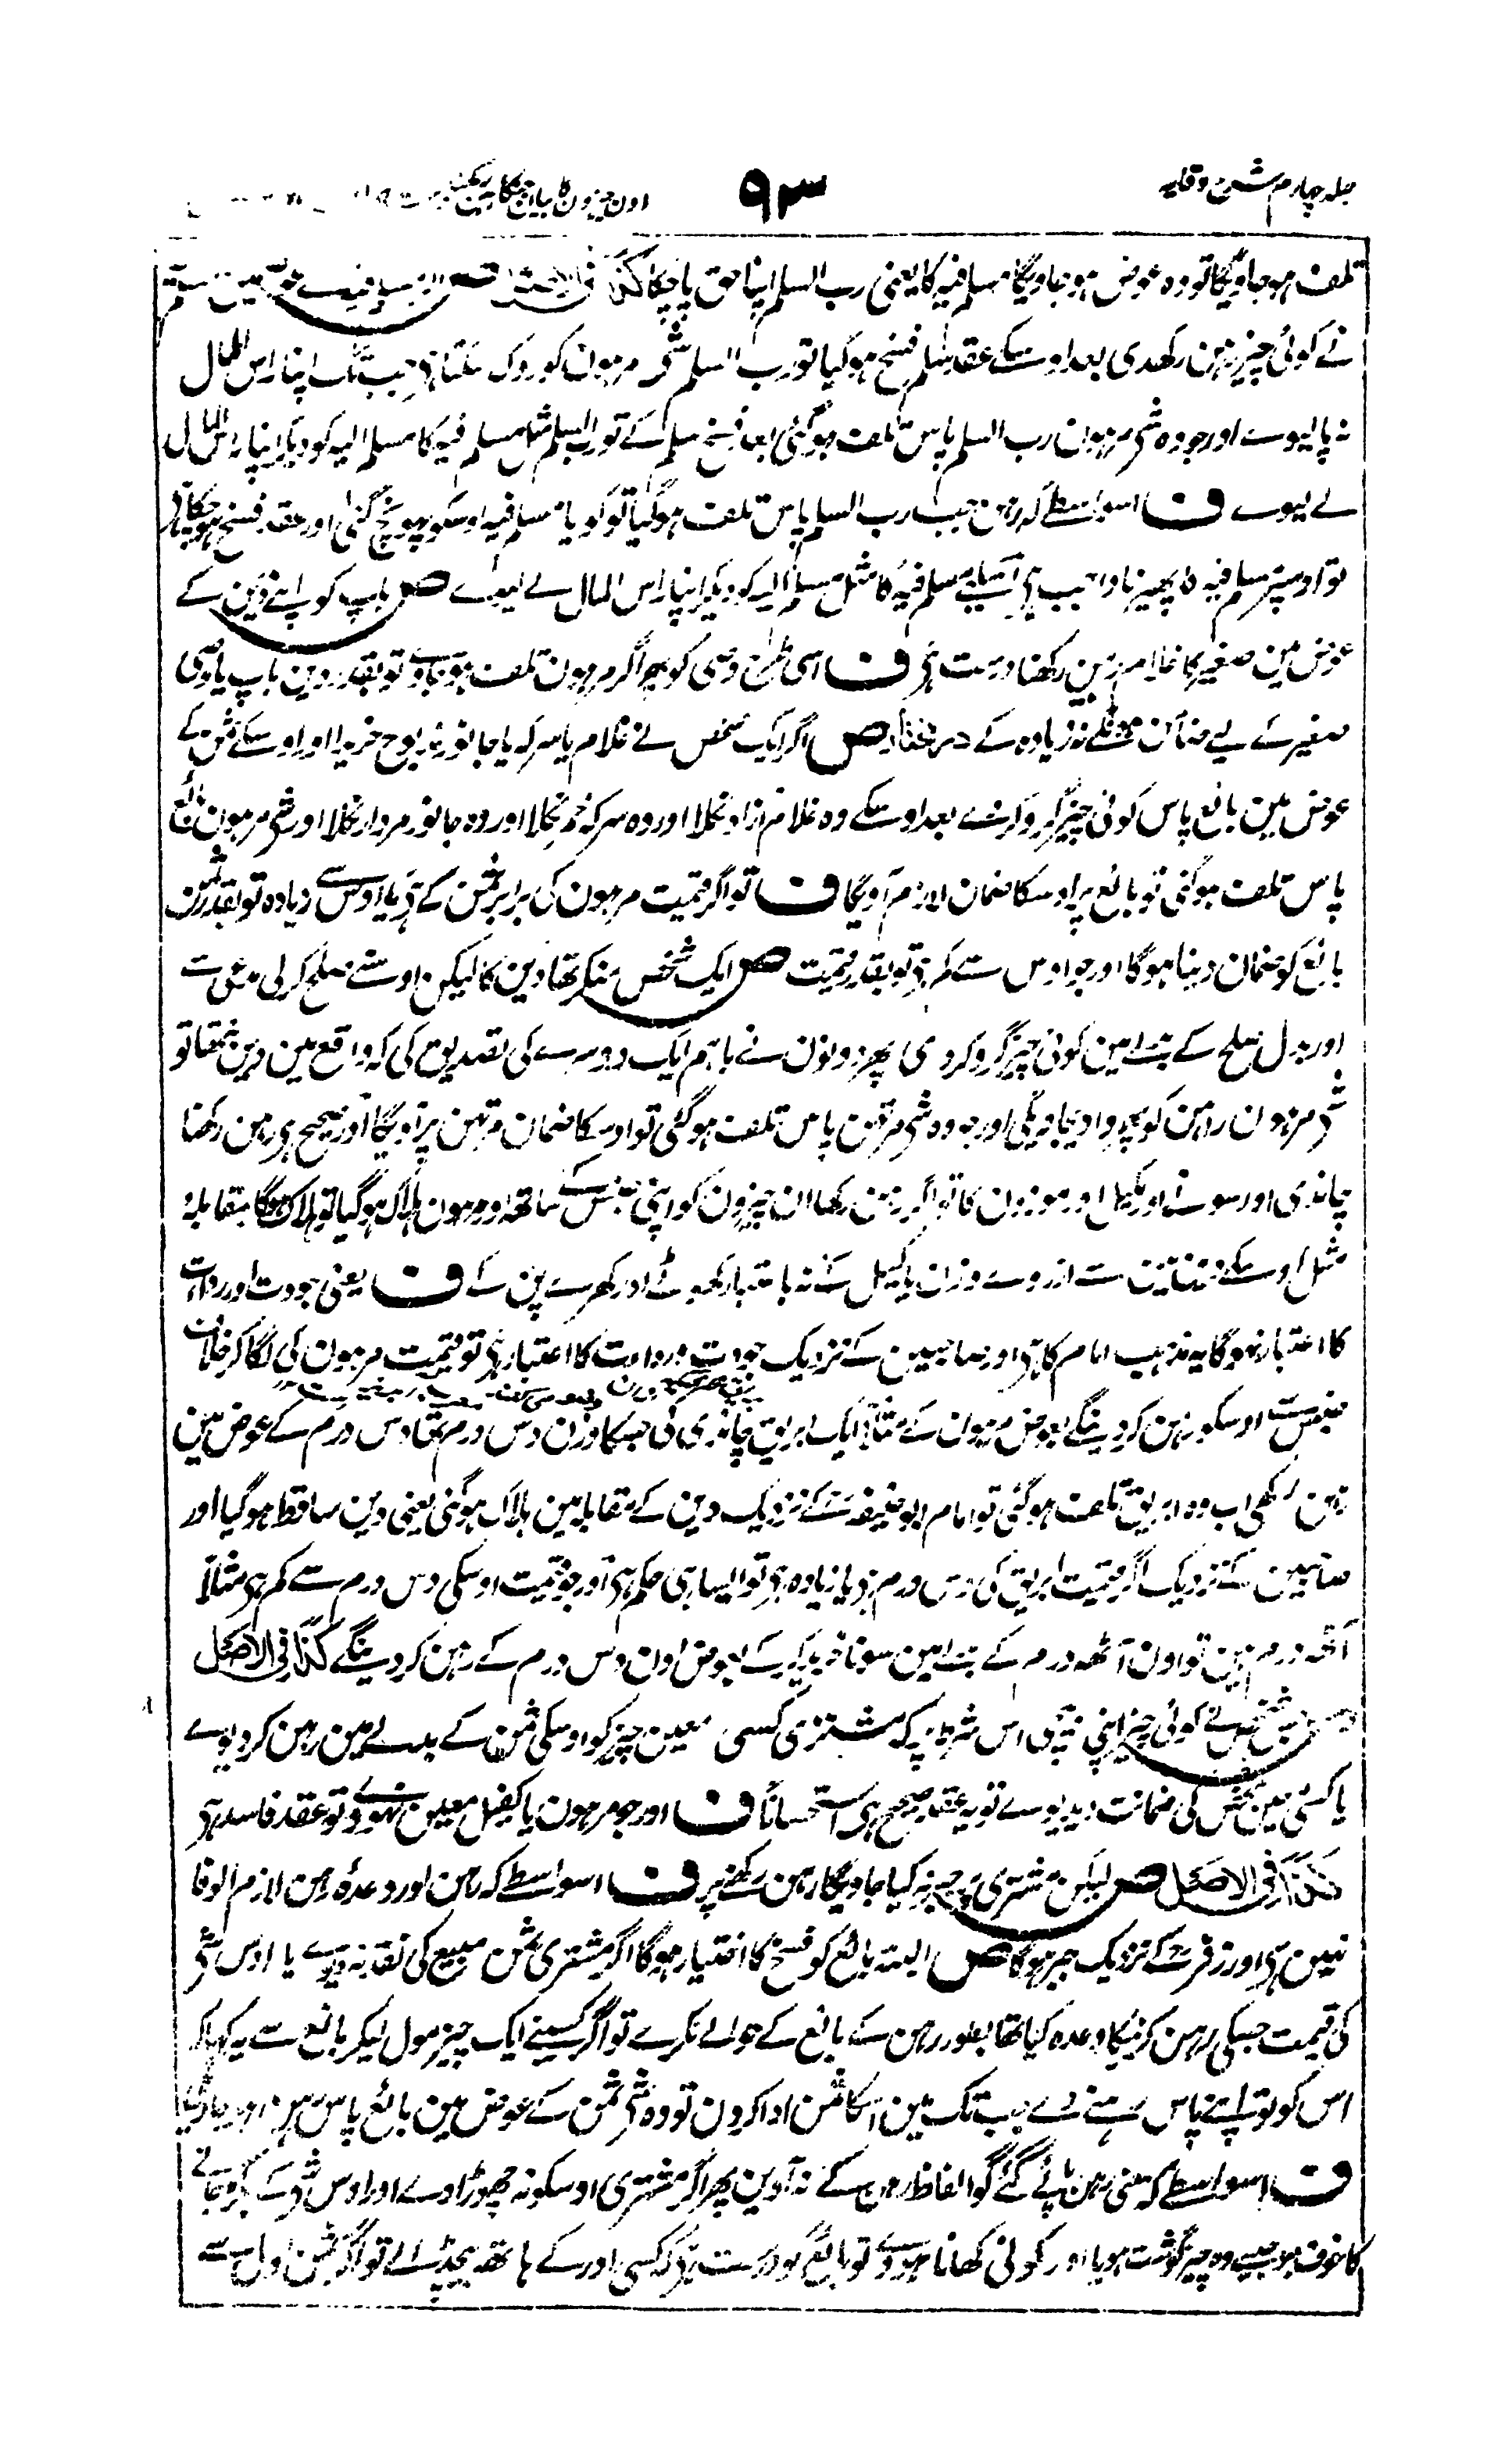 جلد چہارم شرح وقایہ ۹۳ اون چیزون کا بیان جنکا رہن رکھنا
تلف ہو جاویگا تو وہ عوض ہو جاویگا مسلم فیہ کا یعنی رب السلم اپنا حق پا چکا کذا فی
نے کوئی چیز رہن رکھدی بعد اوسکے عقد سلم فسخ ہو گیا تو رب السلم شی مرہون کو روک سکتا ہی جب تک اپنا راس المال
نہ پا لیوے اور جو وہ شی مرہون رب السلم پاس تلف ہو گئی بعد فسخ سلم کے تو رب السلم مثل مسلم فیہ کا مسلم الیہ کو دیکر اپنا راس المال
لے لیوے ف اسواسطے کہ رہن جب رب السلم پاس تلف ہو گیا تو گویا مسلم فیہ اوسکو پہونچ گئی اور عقد فسخ ہو چکا ہی
تو اوسپر مسلم فیہ کا پھیرنا واجب ہی اسلیے مسلم فیہ کا مثل مسلم الیہ کو دیکر اپنا راس المال لے لیوے ص باپ کو اپنے دین کے
عوض مین صغیر کا غلام رہن رکھنا درست ہی ف اسی طرح وصی کو پھر اگر مرہون تلف ہو جاوے تو بقدر دین باپ یا وصی
صغیر کے لیے ضامن ہونگے نہ زیادہ کے در مختار ص اگر ایک شخص نے غلام یا سرکہ یا جانور مذبوح خریدا اور اوسکے ثمن کے
عوض مین بائع پاس کوئی چیز گرو کر دی بعد اوسکے وہ غلام آزاد نکلا اور وہ سرکہ خمر نکلا اور وہ جانور مردار نکلا اور شی مرہون بائع
پاس تلف ہو گئی تو بائع پر اوسکا ضمان لازم آویگا ف تو اگر قیمت مرہون کی برابر ثمن کے ہی یا اوس سے زیادہ تو بقدر ثمن
بائع کو ضمان دینا ہوگا اور جو اوس سے کم ہی تو بقدر قیمت ص ایک شخص منکر تھا دین کا لیکن اوسنے صلح کر لی مدعی سے
اور بدل صلح کے بدلے مین کوئی چیز گرو کر دی پھر دونون نے باہم ایک دوسرے کی تصدیق کی کہ واقع مین دین نتھا تو
شی مرہون راہن کو پھیر وا دیجاویگی اور جو وہ شی مرتہن پاس تلف ہو گئی تو اوسکا ضمان مرتہن پر آویگا اور صحیح ہی رہن رکھنا
چاندی اور سونے اور مکیل اور موزون کا تو اگر رہن رکھا ان چیزون کو اپنی جنس کے ساتھ اور مرہون ہلاک ہو گیا تو ہلاک ہوگا بمقابلہ
مثل اوسکے دین مین سے از روے وزن یا کیل کے نہ باعتبار کھوٹے اور کھرے پن کے ف یعنی جودت اور رداءت
کا اعتبار نہوگا یہ مذہب امام کا ہی اور صاحبین کے نزدیک جودت ورداءت کا اعتبار ہی تو قیمت مرہون کی لگا کر خلاف
جنس سے اوسکو رہن کر دینگے بعوض مرہون کے مثلاً ایک ابریق چاندی کی جسکا وزن دس درم تھا دس درم کے عوض مین
رہن رکھی اب وہ ابریق تلف ہو گئی تو امام ابو حنیفہ کے نزدیک دین کے مقابلہ مین ہلاک ہو گئی یعنی دین ساقط ہو گیا اور
صاحبین کے نزدیک اگر قیمت ابریق کی دس درم ہی یا زیادہ ہی تو ایسا ہی حکم ہی اور جو قیمت اوسکی دس درم سے کم ہی مثلاً
آٹھ درم ہین تو اون آٹھ درم کے بدلے مین سونا خرید کر کے بعوض اون دس درم کے رہن کر دینگے کذا فی الاصل
شخص نے کوئی چیز اپنی بیچی اس شرط پہ کہ مشتری کسی معین چیز کو اوسکی ثمن کے بدلے مین رہن کر دیوے
یا کسی معین شخص کی ضمانت دیدیوے تو یہ عقد صحیح ہی استحساناً ف اور جو مرہون یا کفیل معین نہووے تو عقد فاسد ہی
کذا فی الاصل ص لیکن مشتری پر جبر نہ کیا جاویگا رہن رکھنے پر ف اسواسطے کہ رہن اور وعدۂ رہن لازم الوفا
نہین ہی اور زفر کے نزدیک جبر ہوگا ص البتہ بائع کو فسخ کا اختیار ہوگا اگر مشتری ثمن مبیع کی نقد نہ دیوے یا اوس شی
کی قیمت جسکی رہن کرنیکا وعدہ کیا تھا بطور رہن کے بائع کے حوالے نکرے تو اگر کسینے ایک چیز مول لیکر بائع سے یہ کہا کہ
اس کو تو اپنے پاس رہنے دے جب تک مین اسکا ثمن ادا کرون تو وہ شی ثمن کے عوض مین بائع پاس رہن ہو جاویگی
ف اسواسطے کہ معنی رہن پائے گئے گو الفاظ رہن کے نہ آوین پھر اگر مشتری اوسکو نہ چھوڑاوے اور اوس شی کے بگڑ جانے
کا خوف ہو جیسے وہ چیز گوشت ہو یا اور کوئی کھانا ہووے تو بائع کو درست ہی کہ کسی اور کے ہاتھ بیچڈالے تو اگر ثمن اول سے